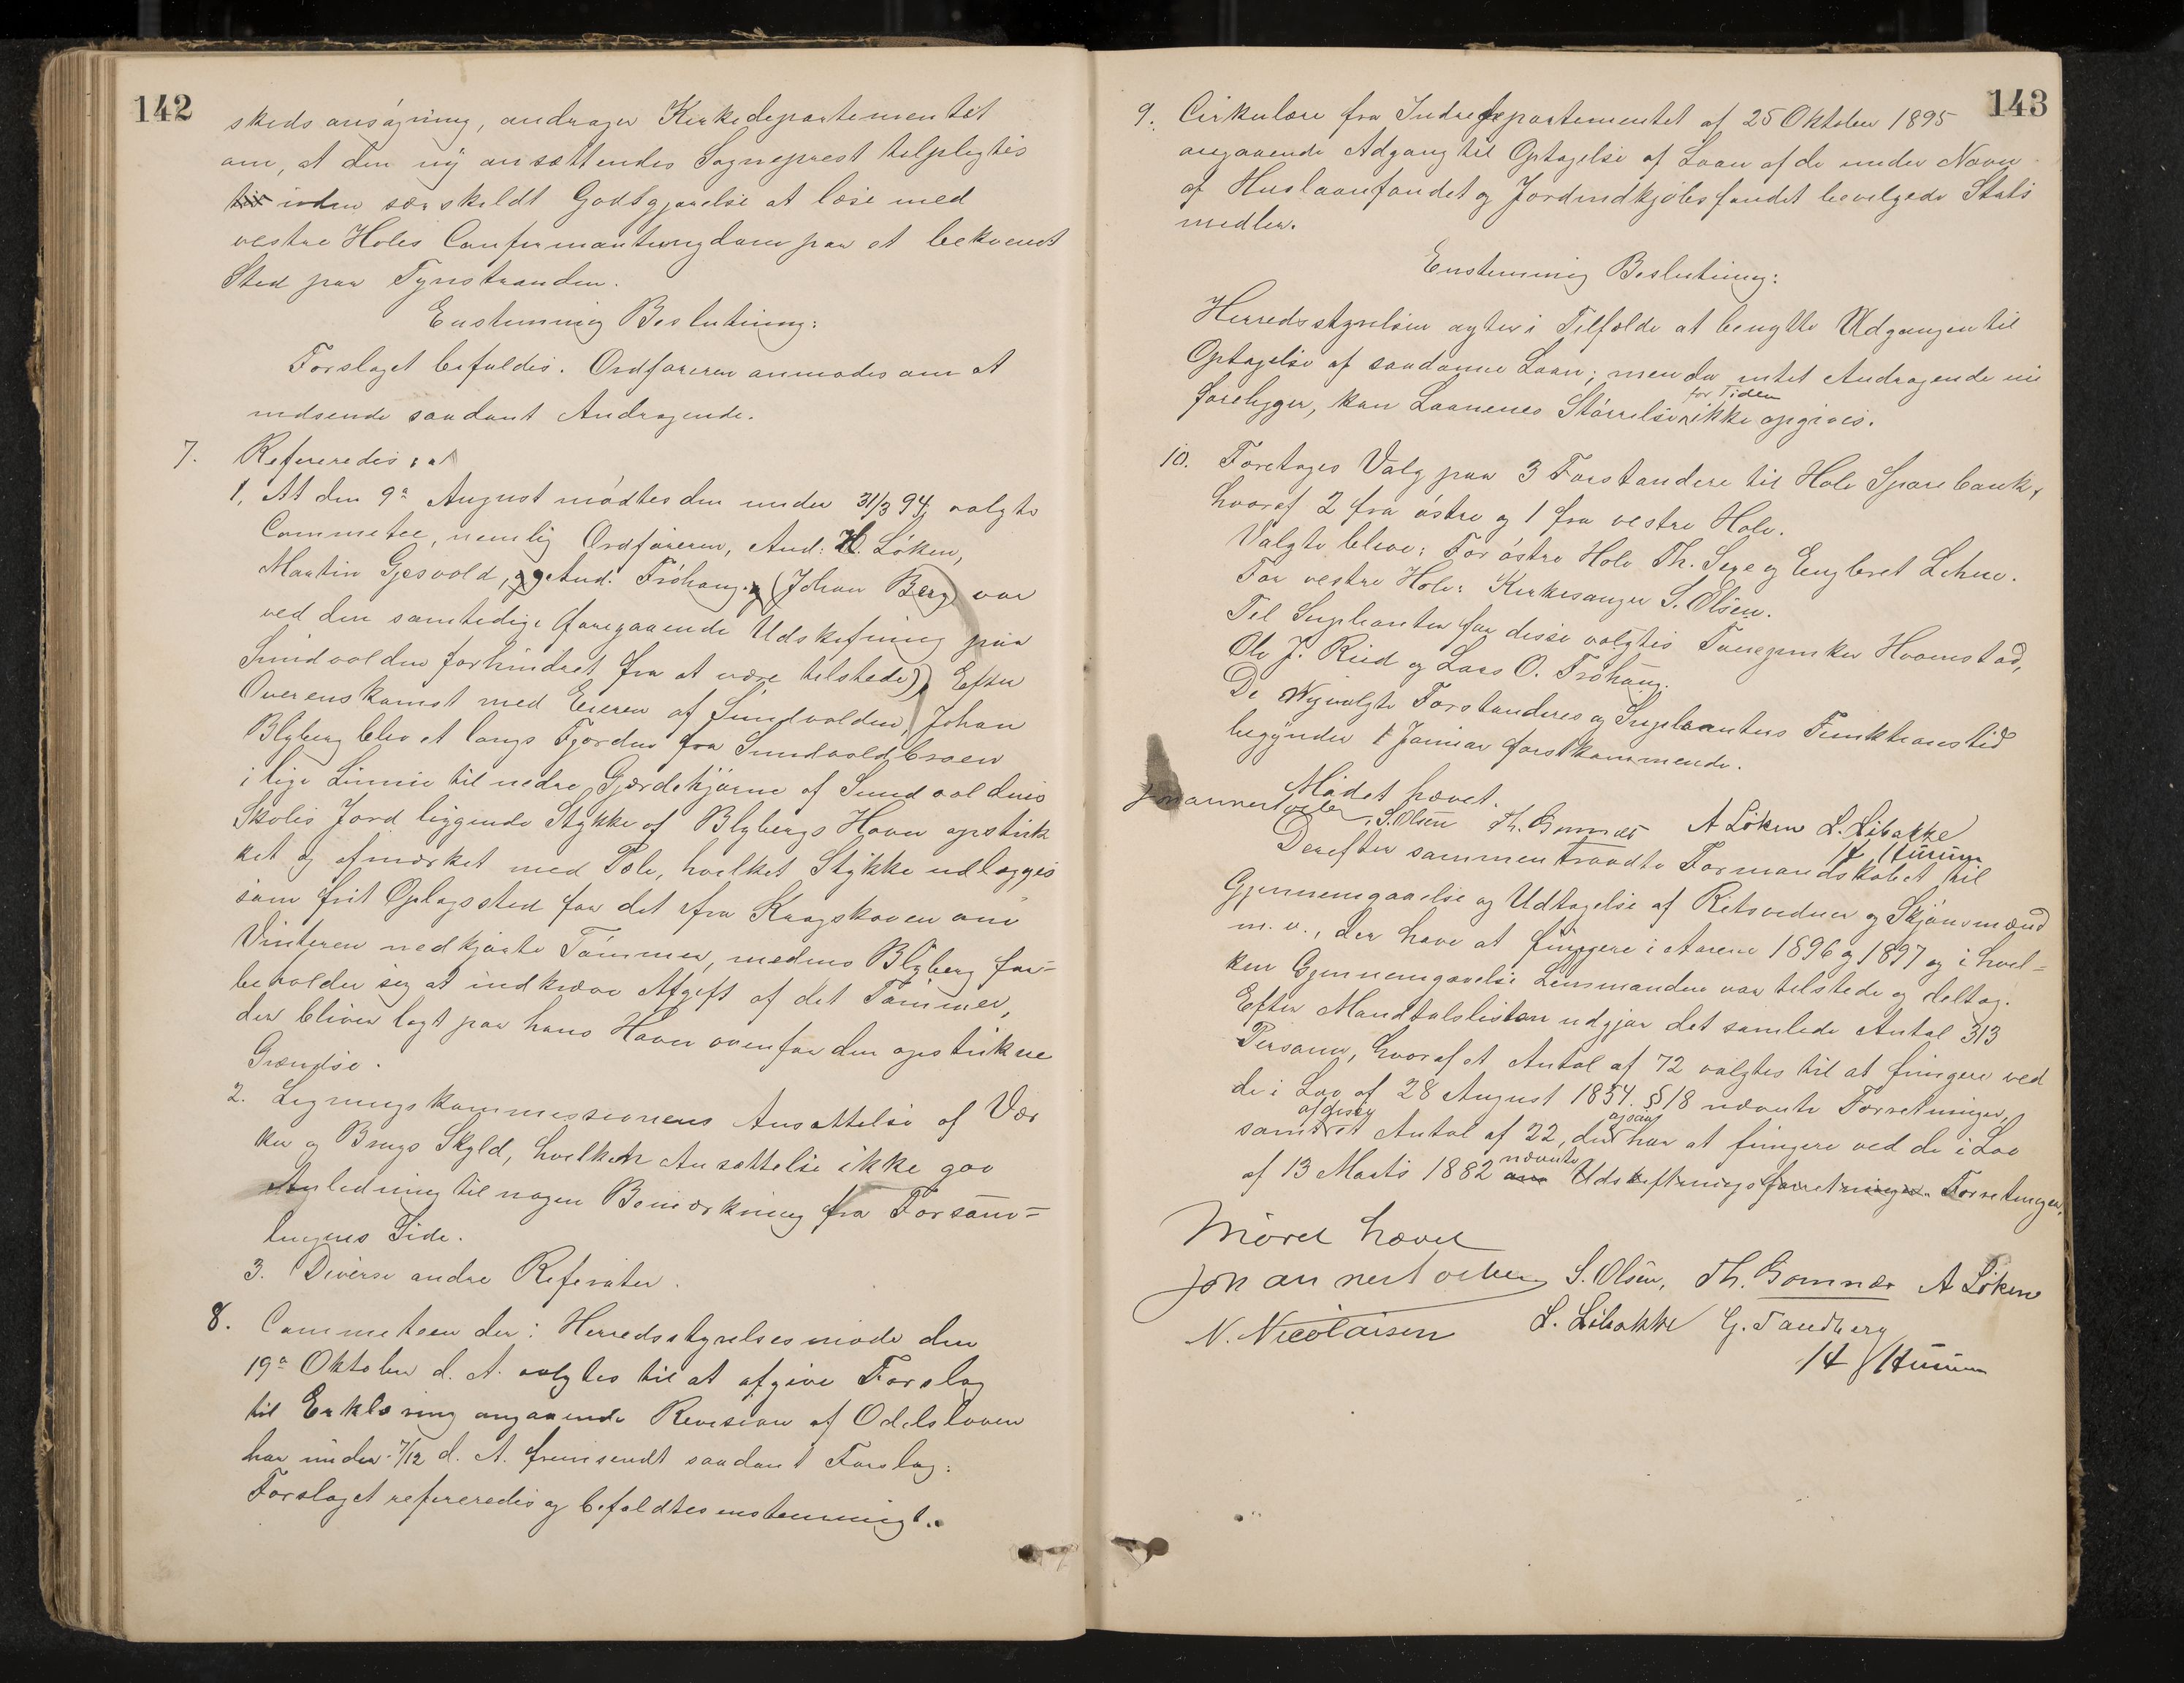 142
skedsansøgning, andrager Kirkedepartementet
om, at den ny ansættendes Sogneprest tilpligtes
til uden særskildt Godtgjørelse at læse med
vestre Holes Confirmantungdom paa et bekvemt
Sted paa Tyristranden.
Enstemmig Beslutning:
Forslaget bifaldes. Ordføreren anmodes om at
indsende saadant Andragende.
7. Refereredes: at
1. At den 9de August mødtes den under 31/3 94 valgte
Committee, nemlig Ordføreren, And: H. Løken,
Martin Gjesvold, og And. Frøhaug. (Johan Berg var
ved den samtidige foregaaende Udskiftning paa
Sundvolden forhindret fra at være tilstede). Efter
Overenskomst med Eieren af Sundvolden, Johan
Blyberg blev et langs Fjorden fra Sundvoldbroen
i lige Linnie til nedre Gjærdehjørne af Sundvoldens
Skoles Jord liggende Stykke af Blybergs Havn opstik
ket og afmærket med Pæle, hvilket Stykke udlægges
som frit Oplagssted for det fra Krogskoven om
Vinteren nedkjørte Tømmer, medens Blyberg for-
beholder sig at indkræve Afgift af det Tømmer,
der bliver lagt paa hans Havn ovenfor den opstukne
Grændse.
2. Ligningskommissionens Ansættelse af Vær
ker og Brugs Skyld, hvilken Ansættelse ikke gav
Anledning til nogen Bemærkning fra Forsam-
lingens Side.
3. Diverse andre Referater.
8. Committeen der i Herredsstyrelsesmøde den
19de Oktober d. A. valgtes til at afgive Forslag
til Erklæring angaaende Revision af Odelsloven
har under 7/12 d. A. fremsendt saadant Forslag.
Forslaget refereredes og bifaldtes enstemmigt.
143
9. Cirkulære fra Indredepartementet af 25 Oktober 1895
angaaende Adgang til Optagelse af Laan af de under Navn
af Huslaanfondet og Jordindkjøbsfondet bevilgede Stats
midler.
Enstemmig Beslutning:
Herredsstyrelsen agter i Tilfælde at benytte Adgangen til
Optagelse af saadanne Laan; men da intet Andragende nu
for Tiden
foreligger, kan Laanenes Størrelse ikke opgives.
10. Foretoges Valg paa 3 Forstandere til Hole Sparebank,
hvoraf 2 fra østre og 1 fra vestre Hole.
Valgte bleve: For østre Hole Th. Sege og Engebret Lehne.
For vestre Hole: Kirkesanger S. Olsen.
Til Suplianter for disse valgtes Hvamstad,
Ole J. Rud og Lars O. Frøhaug.
De Nyvalgte Forstanderes og Suplianters Funktionstid
begynder 1 Januar førstkommende.
Mødet hævet.
S. Olsen Th. Gomnæs A Løken L. Libakke
H Husum
Derefter sammentraadte Formandskabet til
Gjennemgaaelse og Udtagelse af Retsvidner og Skjønsmænd
m. v., der have at fungere i Aarene 1896 og 1897 og i hvil-
ken Gjennemgaaelse Lensmanden var tilstede og deltog.
Efter Mandtalslisten udgjør det samlede Antal 313
Personer, hvoraf et Antal af 72 valgtes til at fungere ved
de i Lov af 28 August 1854 § 18 nævnte Forretninger,
af disse ogsaa
samt et Antal af 22, der har at fungere ved de i Lov
nævnte
af 13 Marts 1882 om Udskiftningsforretninger. Forretninger.
Mødet hævet
S. Olsen, Th. Gomnæs A Løken
N. Nicolaisen L. Libakke G. Sandberg
H Husum